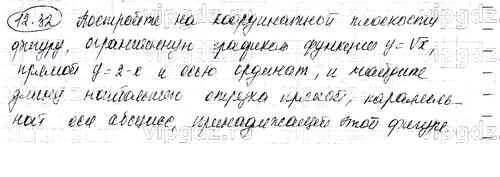 12.32 Постройте на координатной плоскости
фигуру, ограниченную графиком функции y=√x,
прямой y=2-x и осью ординат, и найдите
длину наибольшего отрезка прямой, параллель-
ной оси абсцисс, принадлежащей этой фигуре.
vipgdz.com